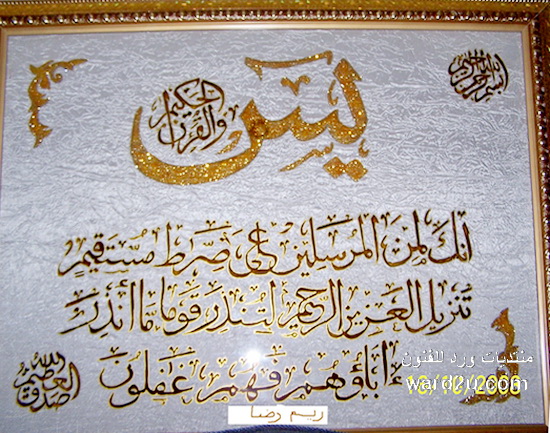 بسم الله الرحمن الرحيم
يس
والقرآن الحكيم
إنك لمن المرسلين على صراط مستقيم
تنزيل العزيز الرحيم لتنذر قوما ما أنذر
ءاباؤهم فهم غفلون
صدق الله العظيم
ريم رضا
منتديات ورد للفنون
ward2u.com